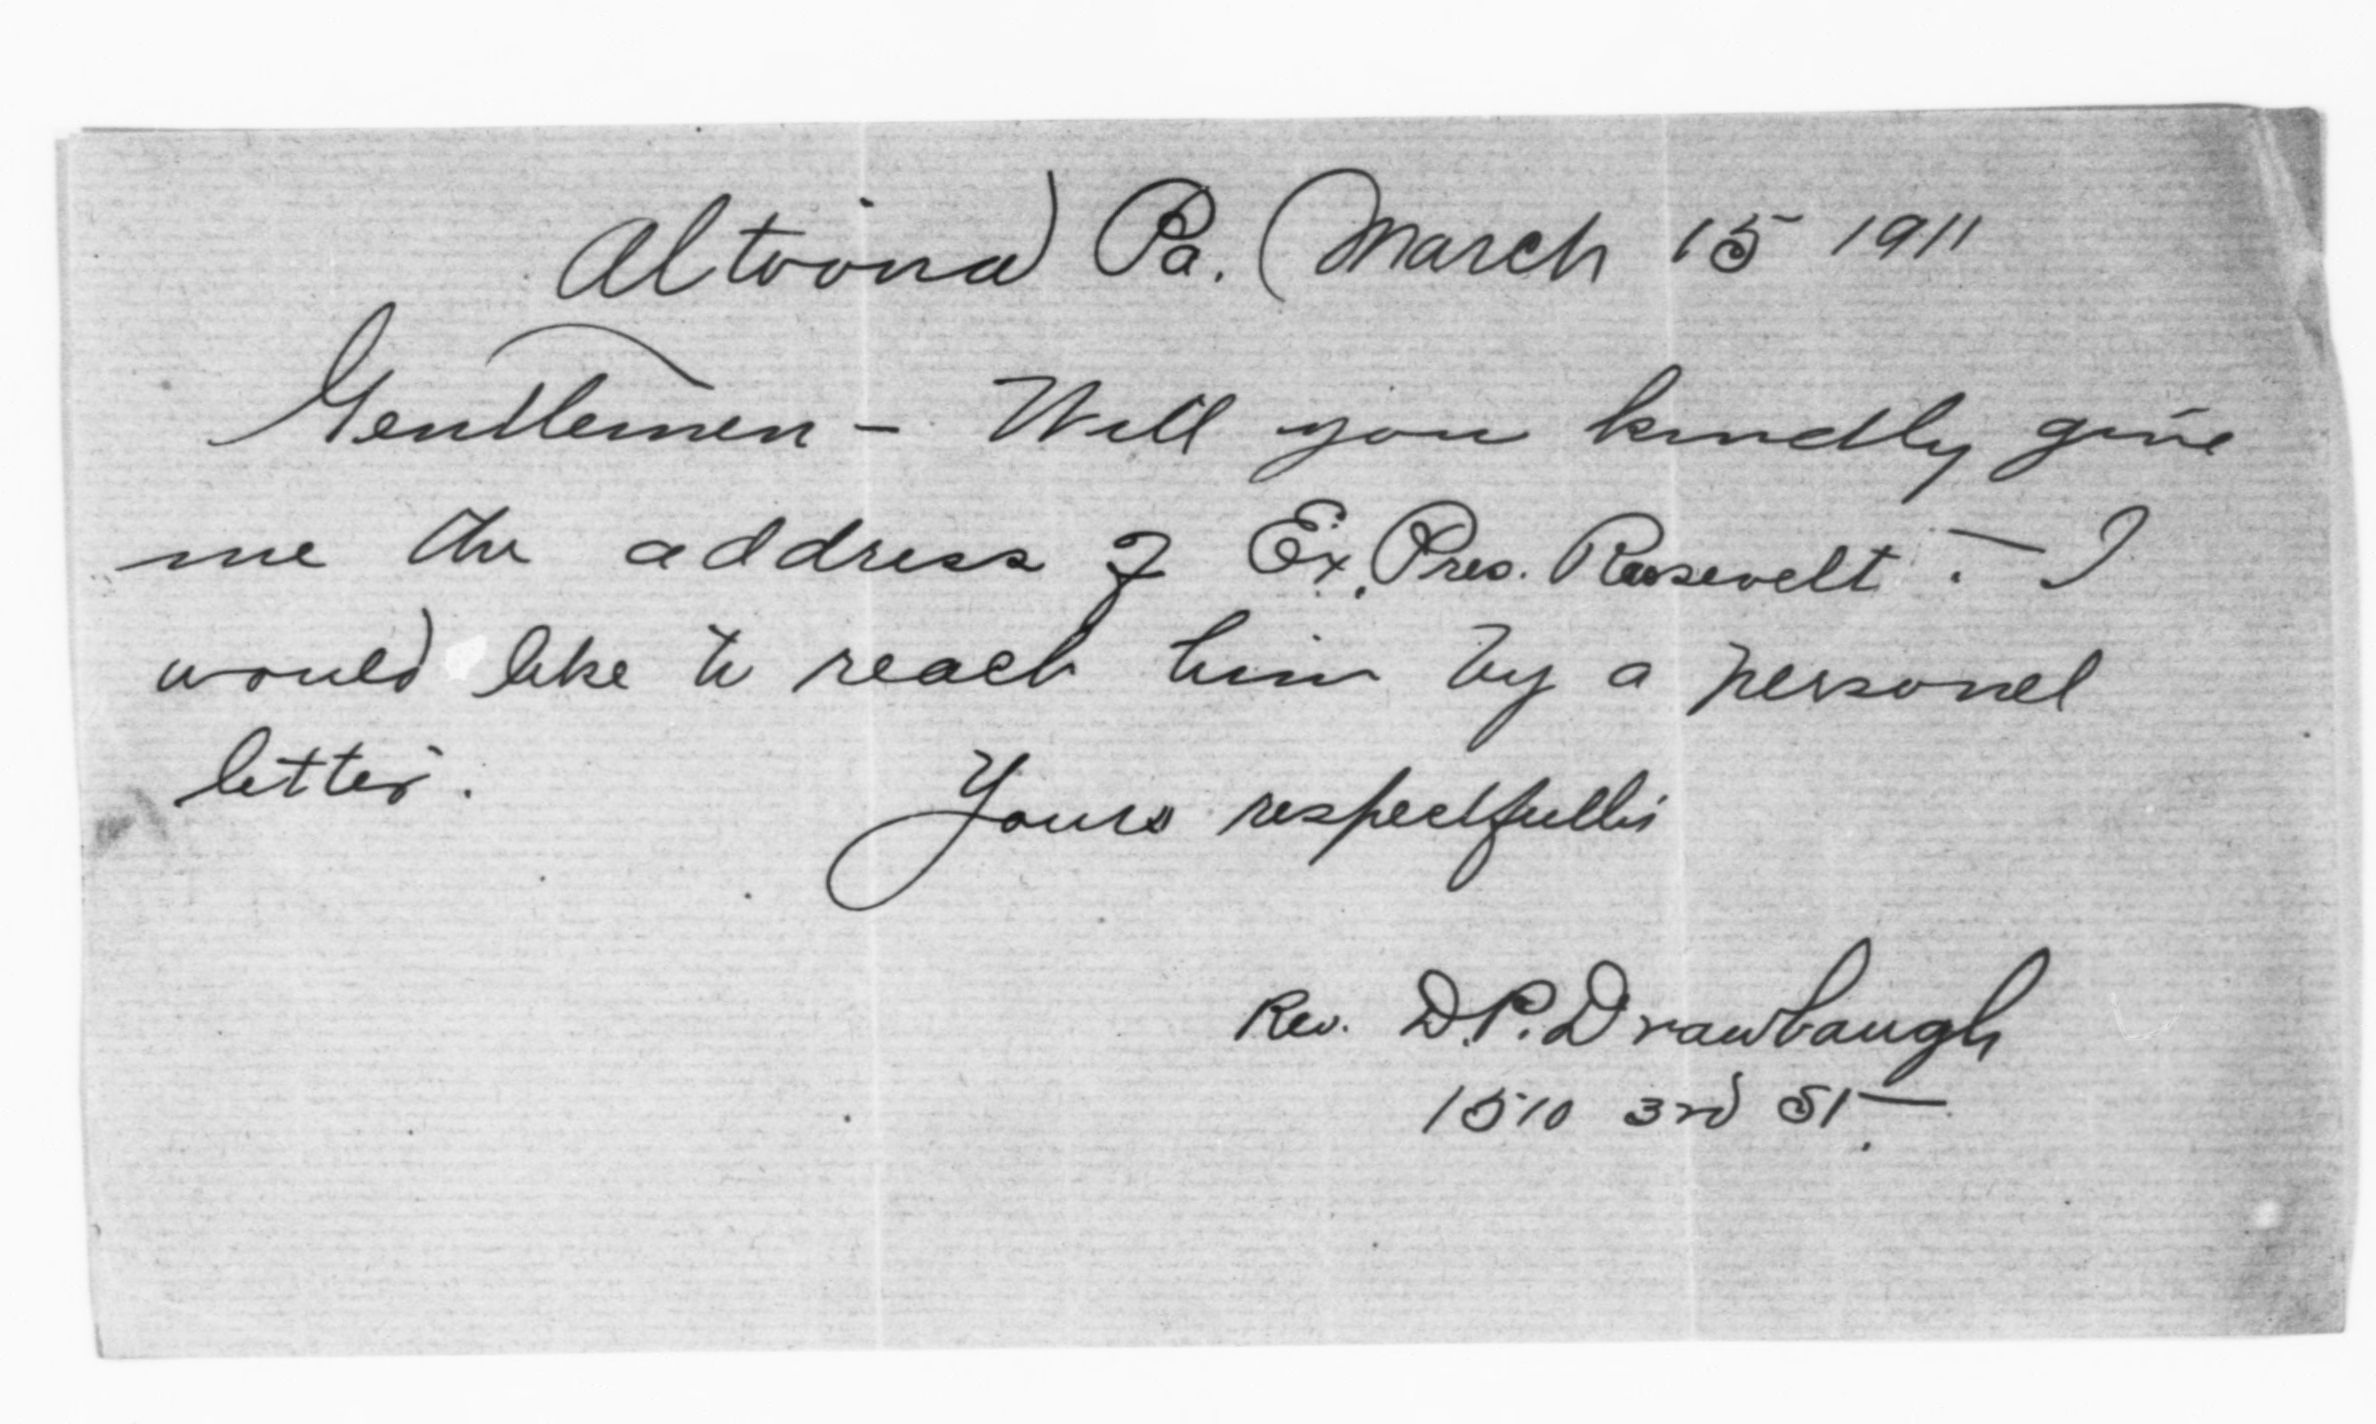 Altoona Pa. March 15 1911
Gentlemen - Will you kindly give
me the address of Ex. Pres. Roosevelt. - I
would like to reach him by a personel
letter.
Yours respectfully
Rev. D.P. Drawbaugh
1510 3rd St.